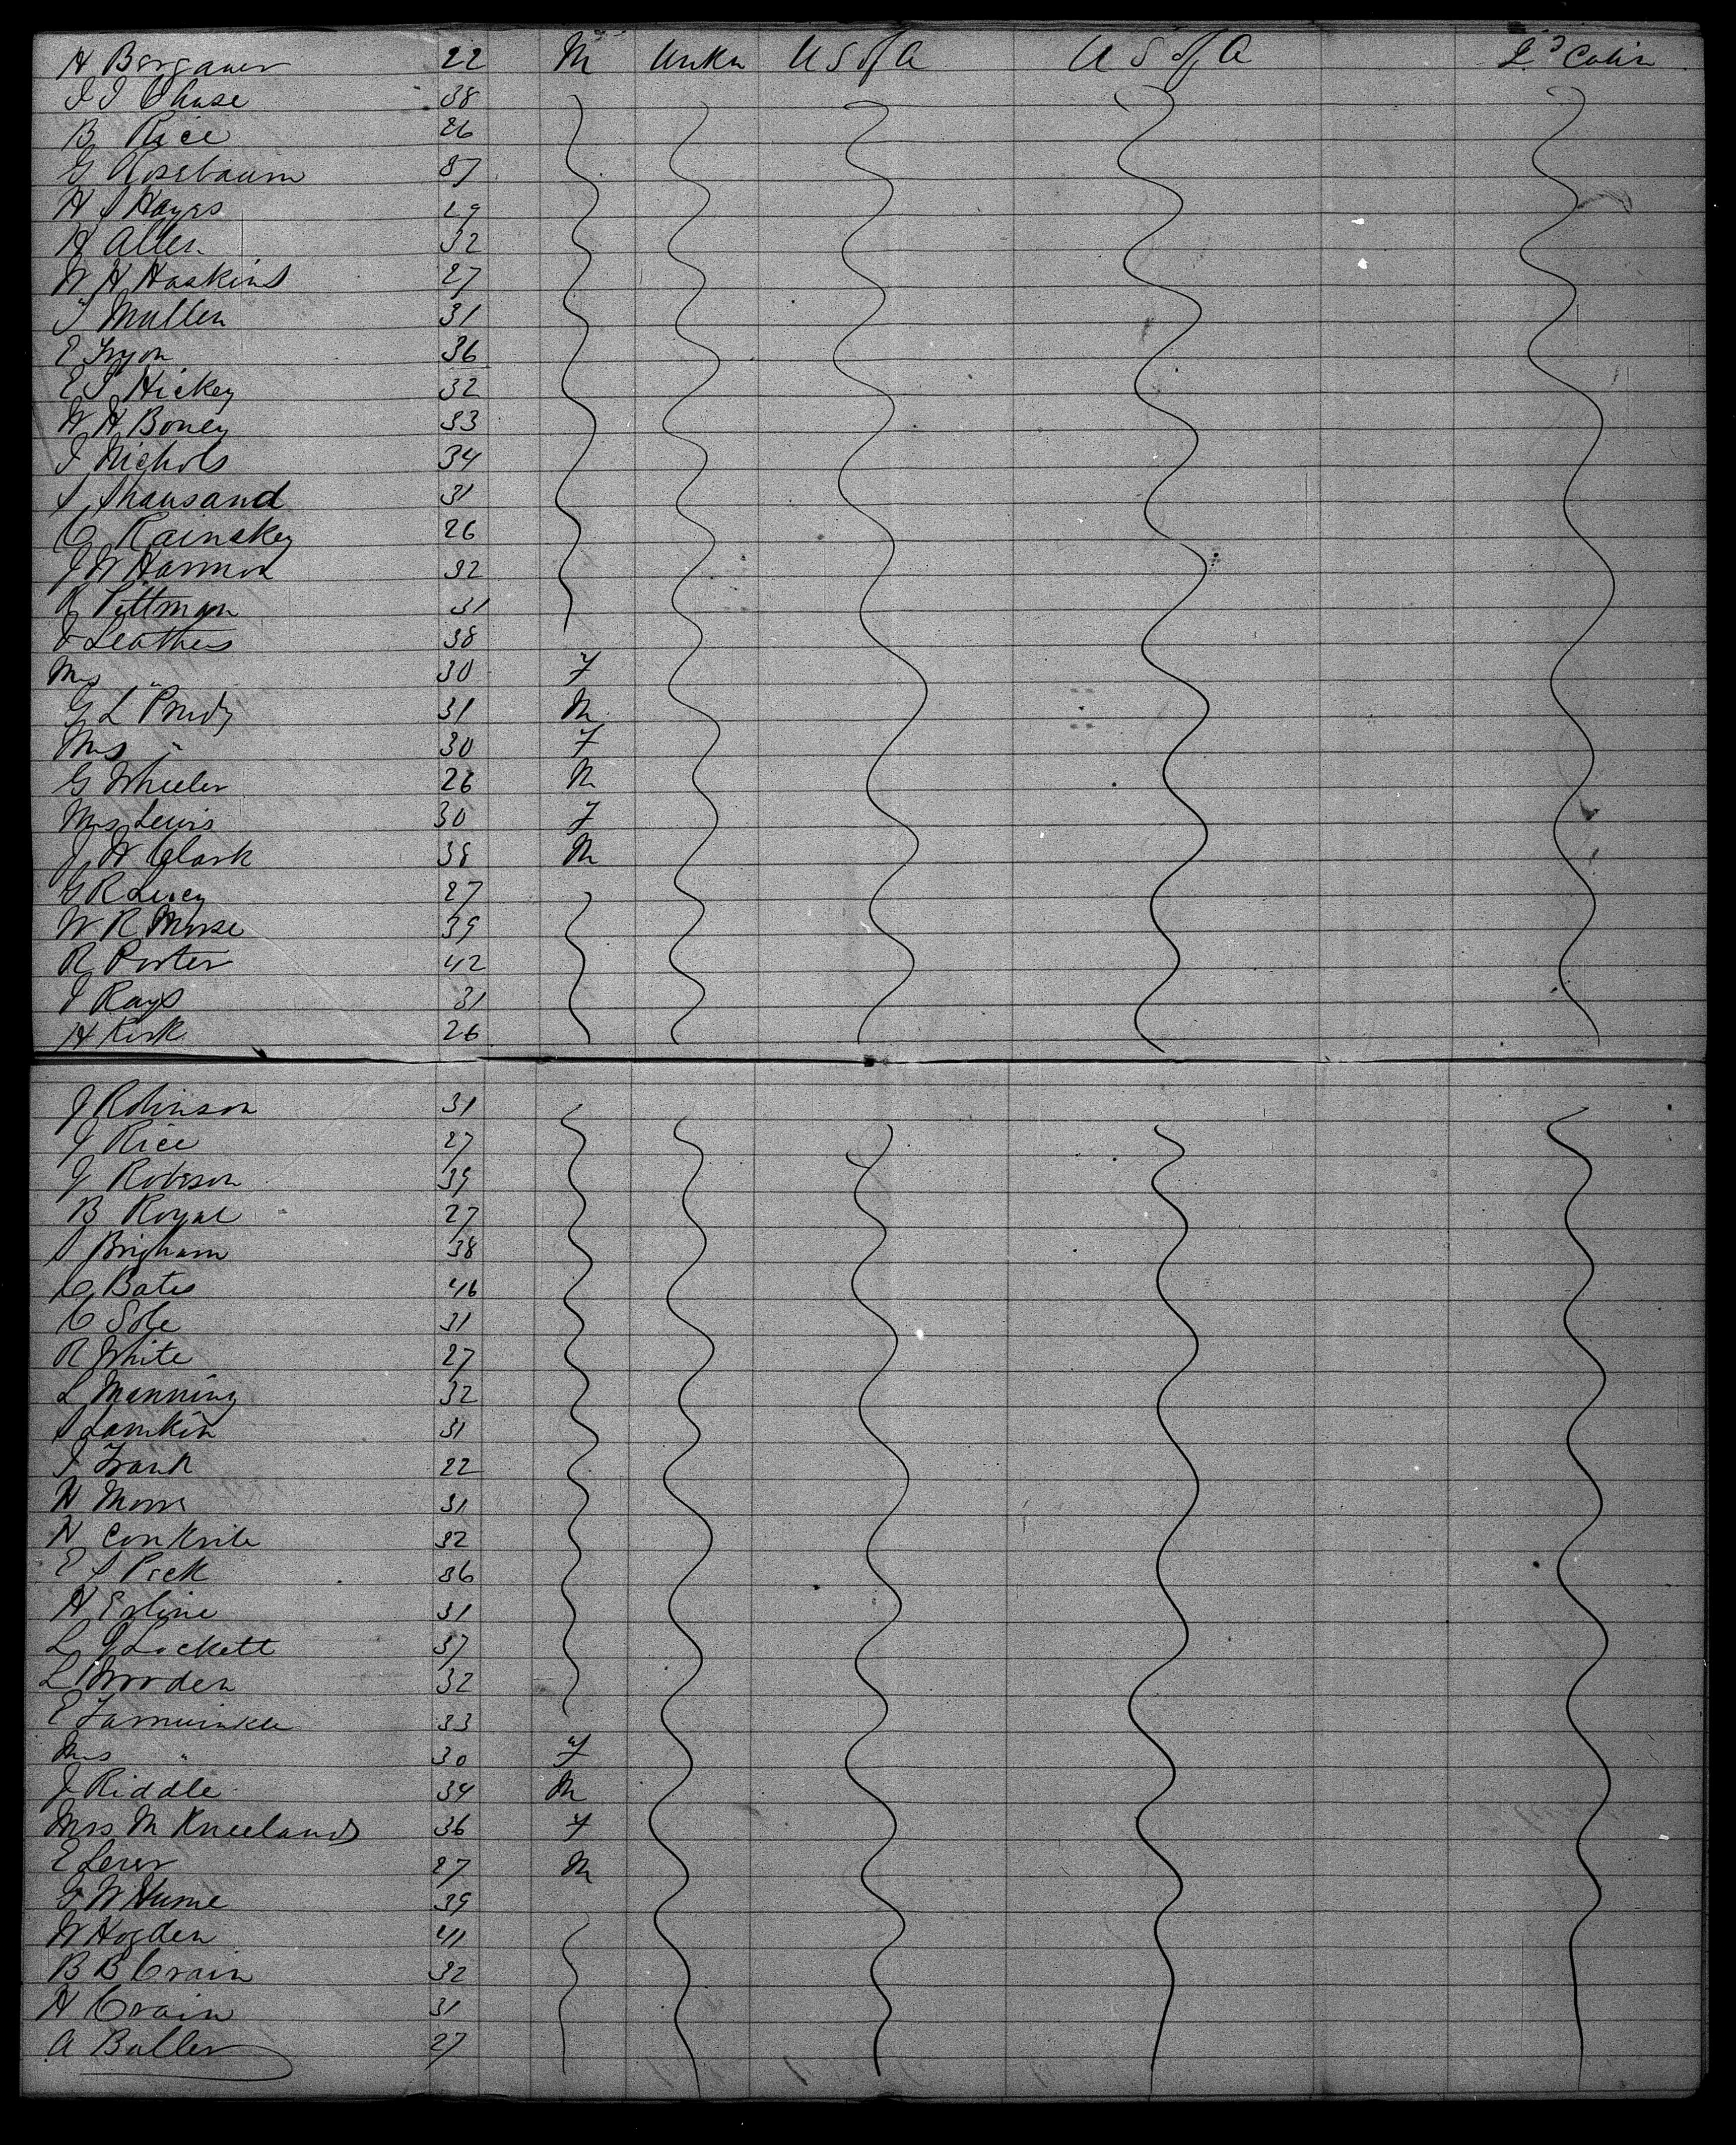 H Bergauer 22 M Unkn U S of A U S of A 2d Cabin
J J Chase 38
B Rice 26
G Rosebaum 37
H S Hayes 29
H Allen 32
W H Haskins 27
J Mullen 31
E Tryon 36
E J Hickey 32
W H Boney 33
J Nichols 34
S Thausand 31
C Rainskey 26
J W Harmon 32
R Pittman 31
J Leathers 38
Mrs " 30 F
G L Prudy 31 M
Mrs " 30 F
G Wheeler 26 M
Mrs Lewis 30 F
J W Clark 38 M
G R Lucey 27
W R Morse 39
R Porter 42
J Rays 31
H Kirk 26
J Robinson 31
J Rice 27
J Robeson 39
B Royal 27
S Brigham 38
C Bates 46
C Sole 31
R White 27
L Manning 32
S Lamkin 31
J Frank 22
H Morris 31
H Conkrite 32
E S Peck 36
H Erline 31
L J Lockett 37
L Wooden 32
E 33
Mrs " 30 F
J Riddle 34 M
Mrs M Kneeland 36 F
E Lever 27 M
G W Hume 39
W Hogden 41
B B Crain 32
H Crain 31
A Buller 27